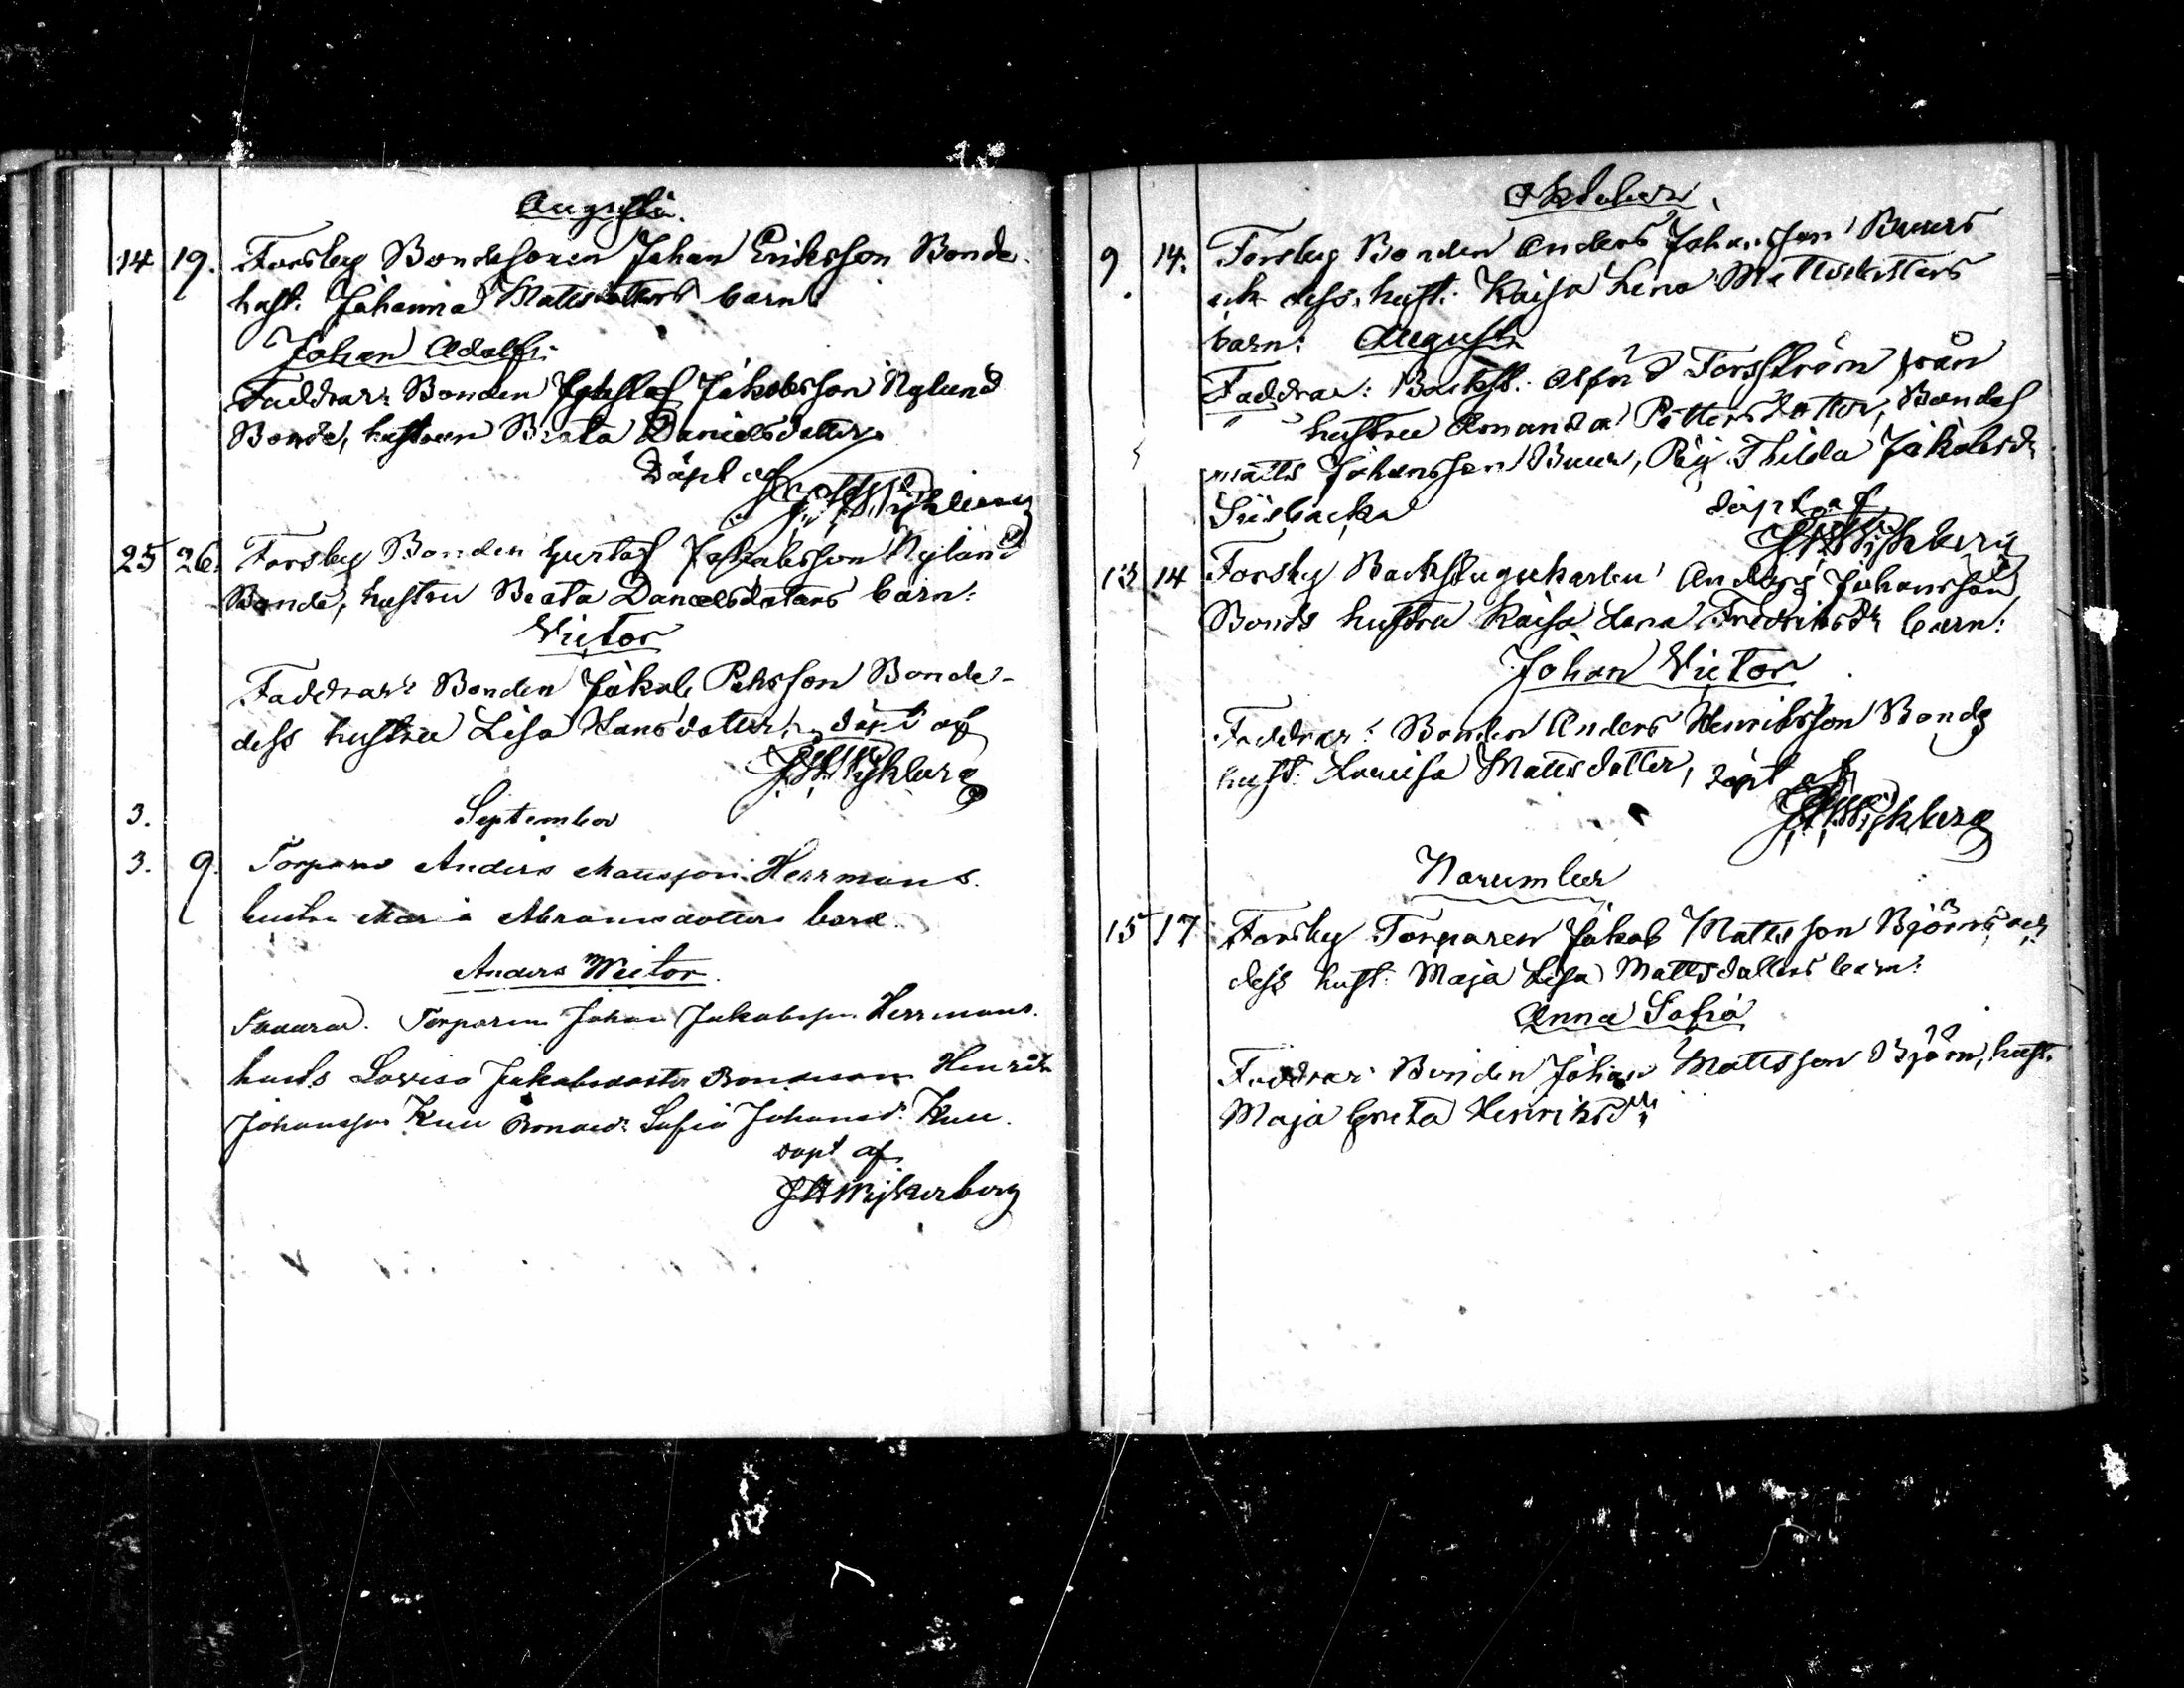 Augusti.
14 19. Forsby Bondesonen Johan Eriksson Bonde
hust. Johanna Mattsdotters barn:
Johan Adolf:
Faddrar: Bonden Gustaf Jakobsson Nylund
Bonde, hustrun Beata Danielsdotter
Döpt af
25 26. Forsby Bonden Gustaf Jakobsson Nylund
Bonde, hustru Beata Danielsdotters barn:
Victor
Faddrar: Bonden Jakob Pehrsson Bonde
dess hustru Lisa Hansdotter, döpt af
3. September
3. 9. Torparen Anders Mattsson Herrmans.
hustru Maria Abramsdotters barn.
Anders Wictor.
Torparen Johan Jakobsson Herrmans.
hust Lovisa Jakobsdotter Bondeson Henrik
Johansson Kuu Bonded: Sofia Johansd: Kuu.
döpt af
Oktober.
9. 14. Forsby Bonden Anders Johansson Buurs
och dess hust. Kaisa Lena Mattsdotters
barn: August
Faddrar: Backst. Alfred Forsström från
" hustru Amanda Pettersdotter, Bondes
Matts Johansson Buur, Pig. Thilda Jakobsdr
döpt af
13 14 Forsby Backstugukarlen Anders Johansson
Bonds hustru Kaisa Lena Fredriksdr barn:
Johan Victor
Faddrar: Bonden Anders Henriksson Bonde
hust. Lovisa Mattsdotter, döpt af
November
15 17 Forsby Torparen Jakob Mattsson Björns och
dess hust: Maja Lisa Mattsdotters barn:
Anna Sofia
Faddrar: Bonden Johan Mattsson Björn, hust.
Maja Greta Henriksdr